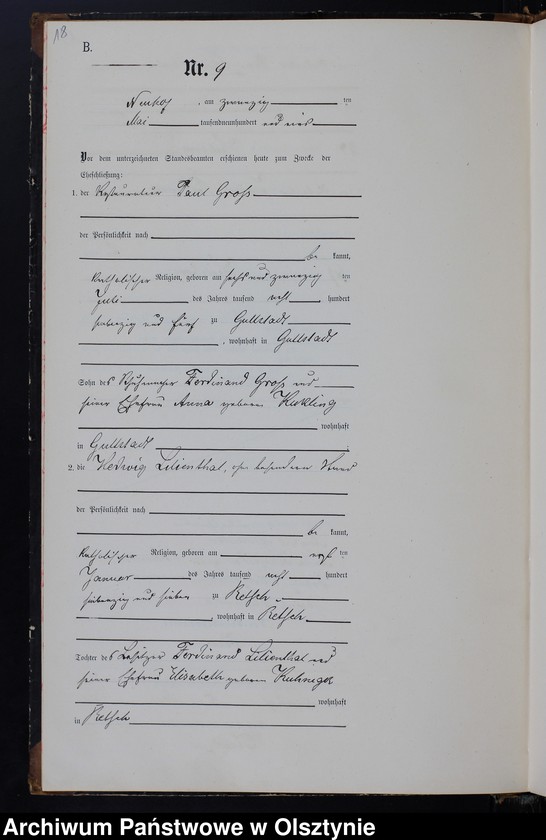 18
B.
Nr. 9
Neuhof, am zwanzig ten
Mai tausendneunhundert und eins
Vor dem unterzeichneten Standesbeamten erschienen heute zum Zwecke der
Eheschließung:
1. der Restaurateur Paul Groß
der Persönlichkeit nach
be kannt,
katholischer Religion, geboren am sechs und zwanzig ten
Juli des Jahres tausend acht hundert
siebenzig und fünf zu Guttstadt
, wohnhaft in Guttstadt
Sohn des Schuhmacher Ferdinand Groß und
seiner Ehefrau Anna geborene Kukling
wohnhaft
in Guttstadt
2. die Hedwig Lilienthal, ohne besonderen Stand
der Persönlichkeit nach
be kannt,
katholischer Religion, geboren am ten
Januar des Jahres tausend acht hundert
siebenzig und sieben zu Retsch
, wohnhaft in Retsch
Tochter des Besitzer Ferdinand Lilienthal und
seiner Ehefrau Elisabeth geborene
wohnhaft
in Retsch
Archiwum Państwowe w Olsztynie